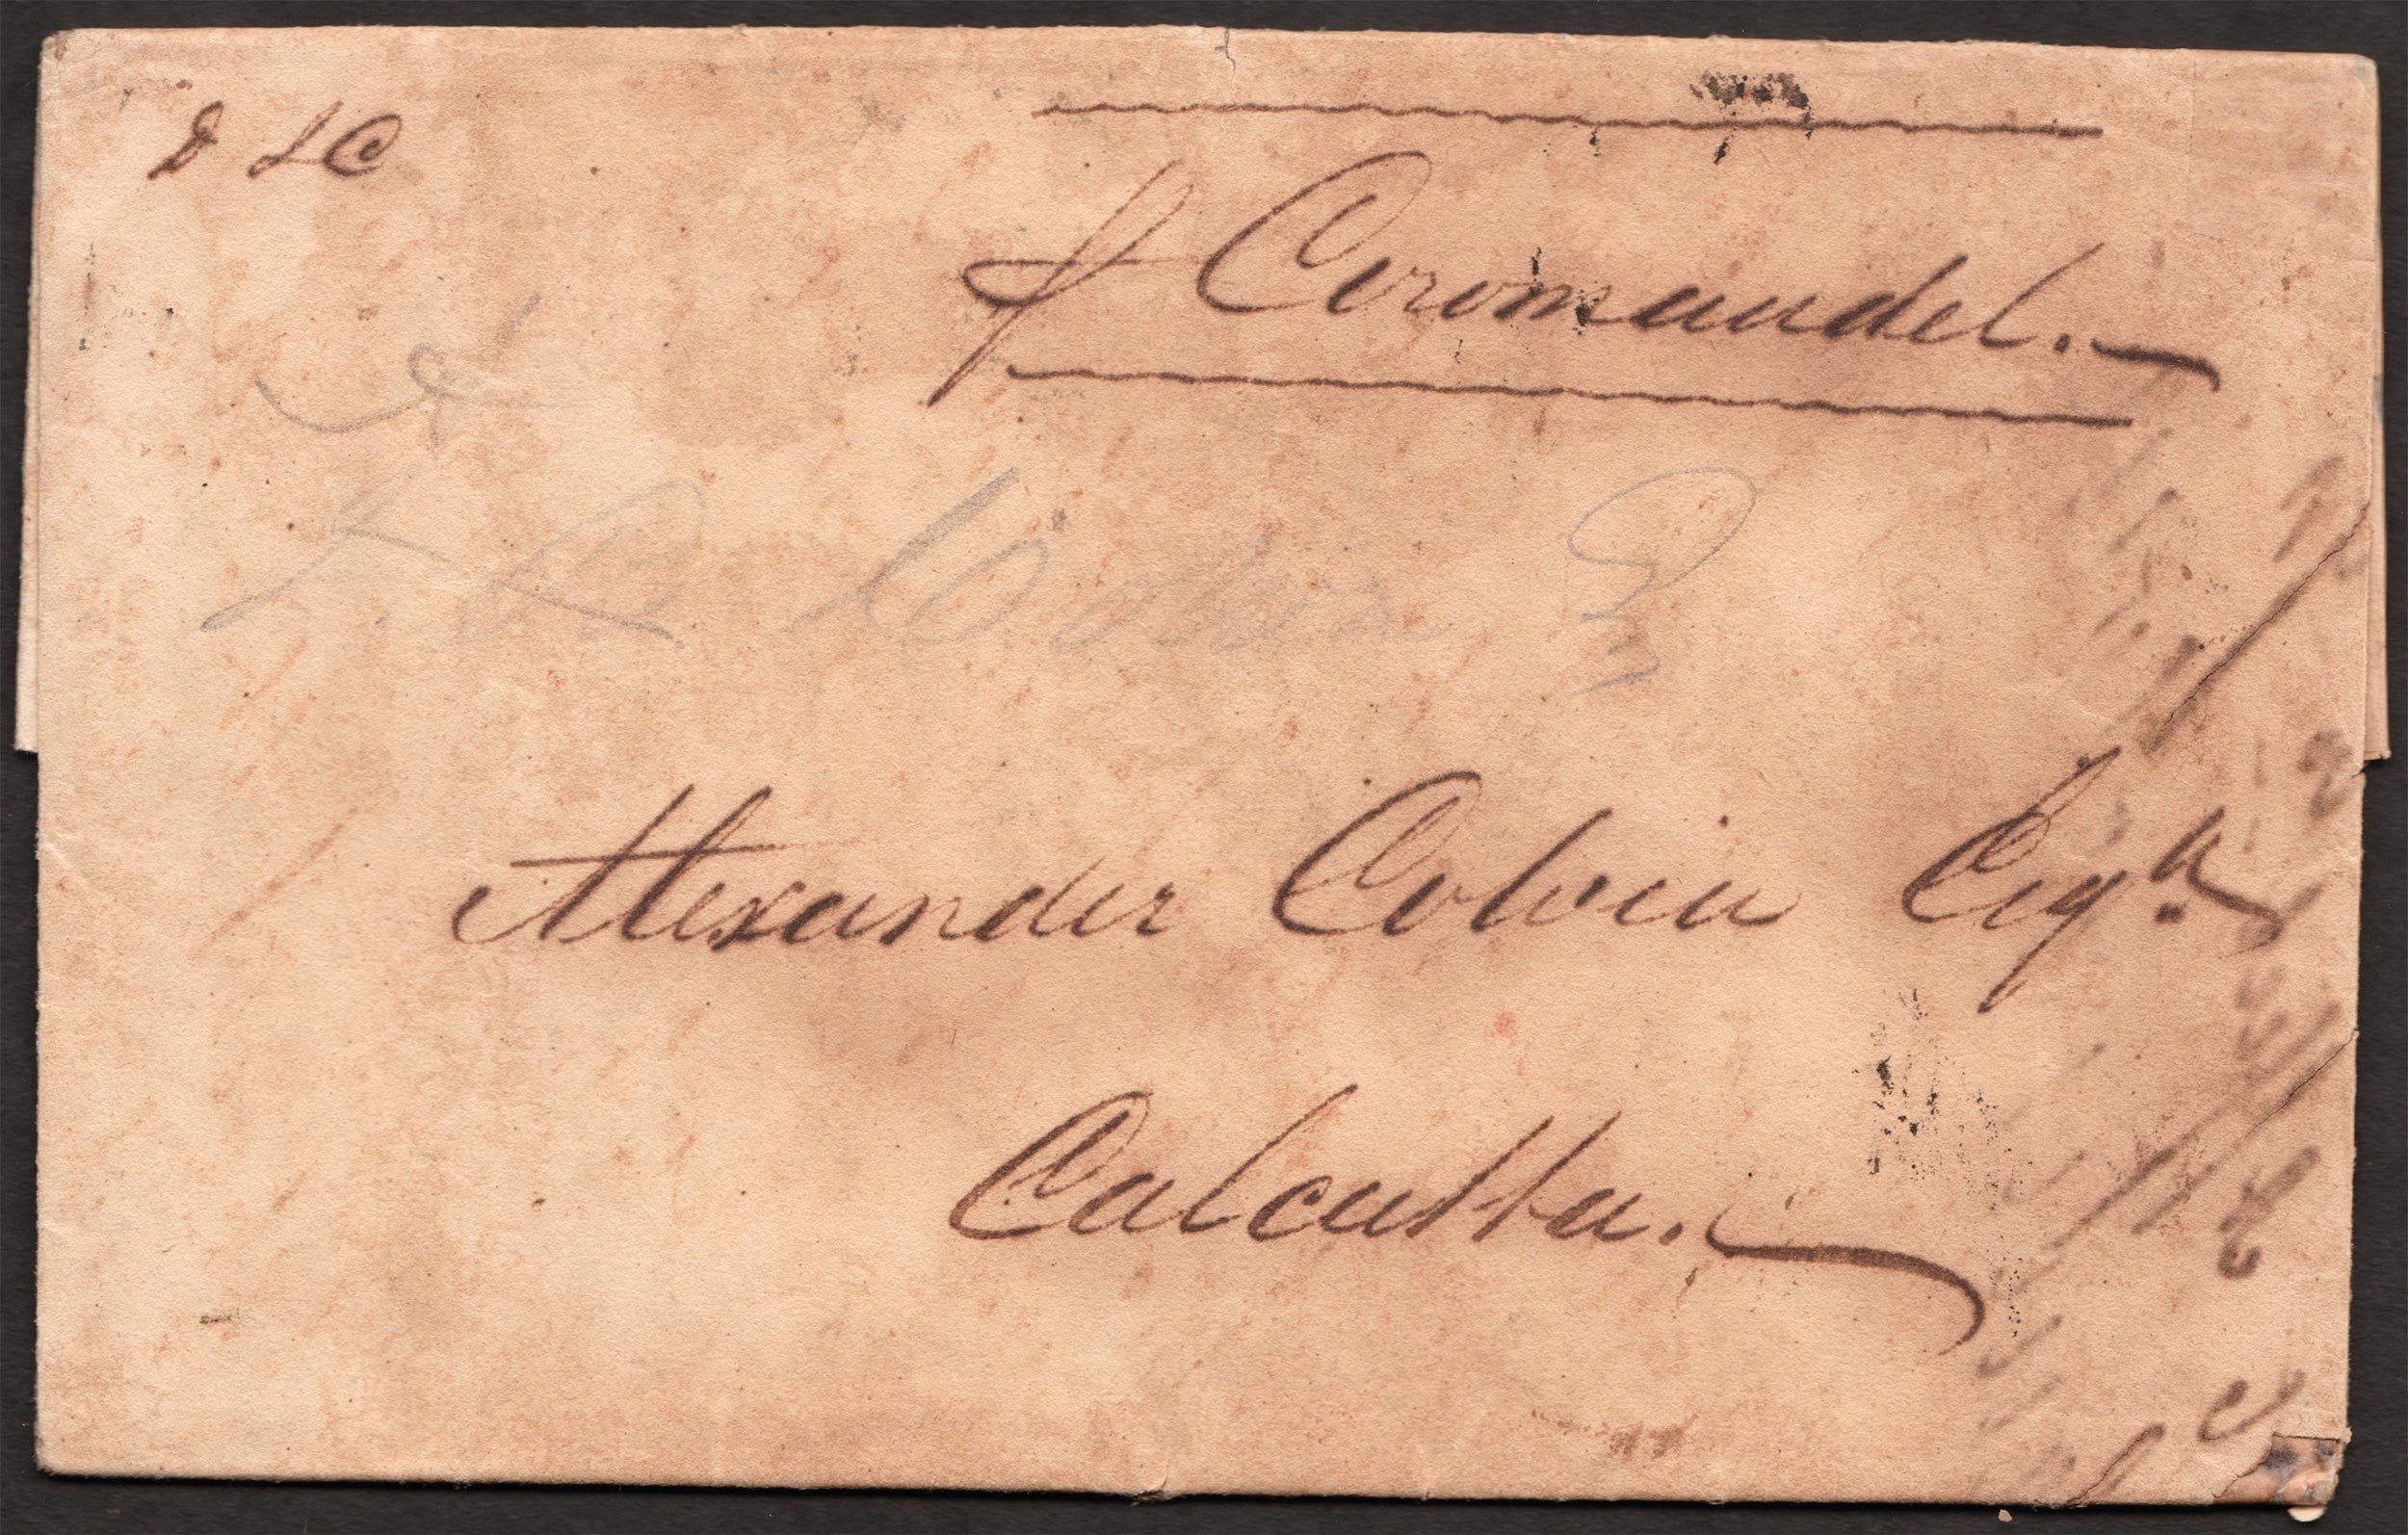 D LC
p Coromandel.
Alexander Colvin Esqr.
Calcutta.